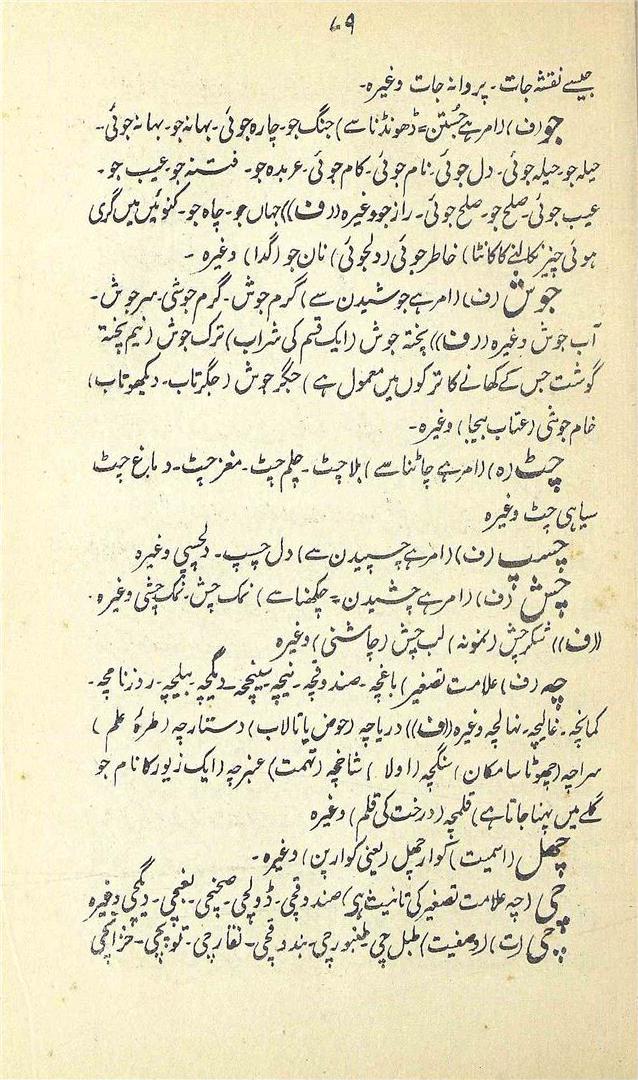 ۶۹
جیسے نقشہ جات۔ پروانہ جات وغیرہ۔
جو (ف) (امر ہے جُستن = ڈھونڈنا سے) جنگ جو۔ چارہ جوئی۔ بہانہ جو۔ بہانہ جوئی۔
حیلہ جو۔ حیلہ جوئی۔ دل جوئی۔ نام جوئی۔ کام جوئی۔ عربدہ جو۔ فتنہ جو۔ عیب جو۔
عیب جوئی۔ صلح جو۔ صلح جوئی۔ راز جو وغیرہ ((ف)) جہاں جو۔ چاہ جو۔ کنوئیں میں گری
ہوئی چیز نکالنے کا کانٹا) خاطر جوئی (دلجوئی) نان جو (گدا) وغیرہ ۔
جوش (ف) (امر ہے جوشیدن سے) گرم جوش۔ گرم جوشی۔ سرجوش۔
آب جوش وغیرہ ((ف)) پختہ جوش (ایک قسم کی شراب) ترک جوش (نیم پختہ
گوشت جس کے کھانے کا ترکوں میں معمول ہے) جگر جوش (جگرتاب۔ دیکھو تاب)
خام جوشی (عتاب بیجا) وغیرہ۔
چٹ (ہ) (امر ہے چاٹنا سے) بلا چٹ۔ چلم چٹ۔ مغز چٹ۔ دماغ چٹ
سیاہی چٹ وغیرہ
چسپ (ف) (امر ہے چسپیدن سے) دل چسپ۔ دلچسپی وغیرہ
چش (ف) (امر ہے چشیدن = چکھنا سے) نمک چش۔ نمک چشی وغیرہ۔
((ف)) شکر چش (نمونہ) لب چش (چاشنی) وغیرہ
چہ (ف) (علامت تصغیر) باغچہ۔ صندوقچہ۔ نیچہ۔ سینچہ۔ دیگچہ۔ بیلچہ۔ روزنامچہ۔
کمانچہ۔ غالیچہ۔ نہالچہ وغیرہ ((ف)) دریاچہ (حوض یا تالاب) دستارچہ (طرۂ علم)
سراچہ (چھوٹا سا مکان) سنگچہ (اولا) شاخچہ (تہمت) عنبرچہ (ایک زیور کا نام جو
گلے میں پہنا جاتا ہے) قلمچہ (درخت کی قلم) وغیرہ
چھل (اسمیت) کوار چھل (یعنی کوارپن) وغیرہ۔
چی (چہ علامت تصغیر کی تانیث ہی) صندوقچی۔ ڈولچی۔ صحنچی۔ بغچی۔ دیگچی وغیرہ
چی (ت) (وصفیت) طبل چی۔ طنبورچی۔ بندوقچی۔ نقارچی۔ توپچی۔ خزانچی